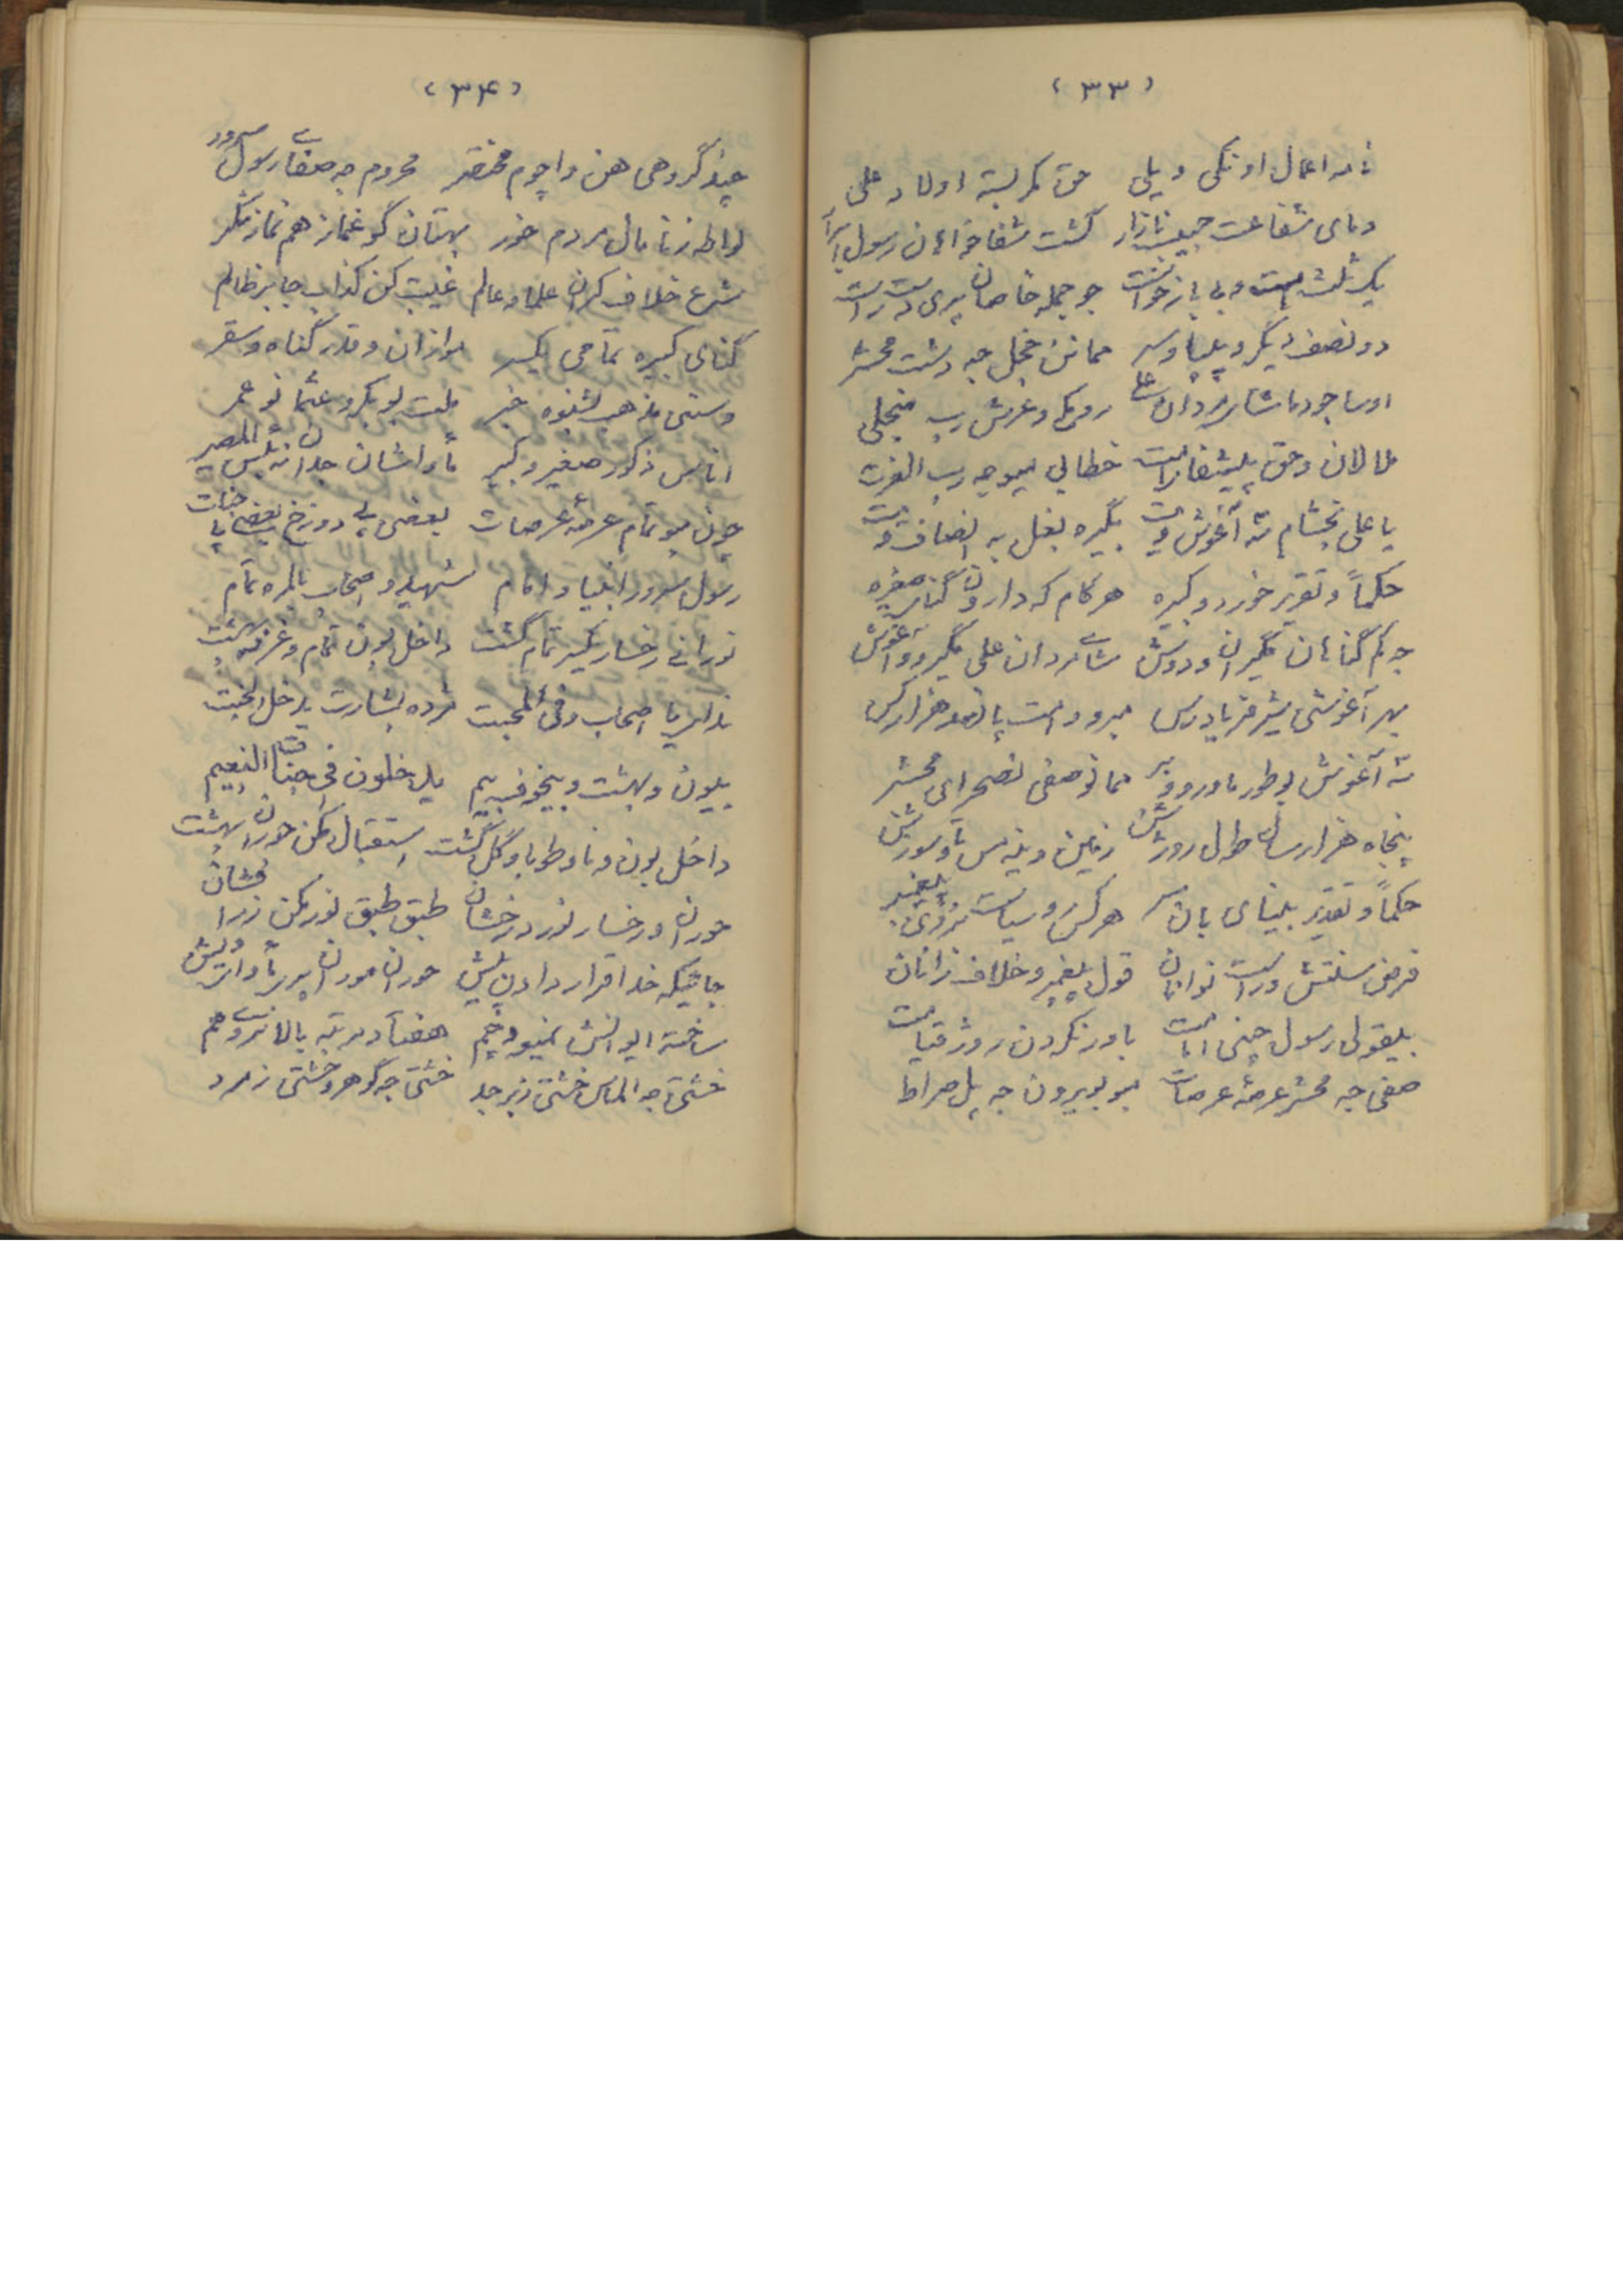 (٣٣)
نامه اعمال او نکی و یلی حق کمر بسته اولاد علی
دمای شفاعت حبیب نازار گشت شفاخوانان رسول
یک ثلث امت و بی بازخواست جو جمله خاصان پری دست راست
دو نصف دیگر و پلیا و سر ممانن خجل جه دشت محشر
اوسا جودما شای مردان علی رومکی و عرش رب منجلی
ملالان و حق پی شفا امت خطابی میو جه رب العزت
یا علی بخشام ته آغوش ویت بگیره بغل به انصاف ویت
حکماً و تقریر خورد و کبیره هر کام که دارون گنای صغیره
جه کم گناهان مگیران و دوش شای مردان علی مگیرو و آغوش
بهر آغوشی شیر فریادرس مبرو امت پانصد هزار کس
ته آغوش بو طور ماورو و بر ممانو صفی نصحرای محشر
پنجاه هزار سال طول روژش زمین وینه مس تاو سورش
حکماً و تقدیر بینای بان سر هرکس و سیاست پیغمبر
فرض سنتش و راست نوانان قول پیغمبر و خلاف زانان
بلیقولی رسول چنی امامت باور نکردن روژ قیامت
صفی جه محشر عرصهٔ عرصات میو بویرون جه پل صراط
(٣۴)
چند گروهی هن واچوم مختصر محروم جه صفای رسول سرور
لواطه زنا مال مردم خور بهتان گو غماز هم نماز نکر
شرع خلاف کران علما و عالم غیبت کن کذاب جابر ظالم
گنای کبیره تمامی یکسر موازان و قدر گناه و سقر
و سنی مذهب بشنوه خبر ملت بوبکر و عثمان و عمر
اناس ذکور صغیر و کبیر ماواشان جدا نه بئس المصیر
چون میو تمام عرصهٔ عرصات بعضی پی دوزخ بعضی پا جنات
رسول سرور انبیا و امام شهید و اصحاب بالمره تمام
نورانی رخسار یکسر تمام گشت داخل بون تمام و غرفه بهشت
ندا یا اصحاب و فی المحبت مژده بشارت یدخل الجنت
بلیون و بهشت و بیخوف بیم یدخلون فی جنات النعیم
داخل بون و ناو طوبا و گل گشت استقبال مکن حوران بهشت
حوران و رخسار نور درخشان طبق طبق نور مکن زر افشان
جائیکه خدا قرار دادن پیش حوران مورانا پری ماوای ویش
ساخته ایوانش مینو و خیم هفتاد مرتبه بالا نروی هم
خشتی جه الماس خشتی زبرجد خشتی جه گوهر و خشتی زمرد